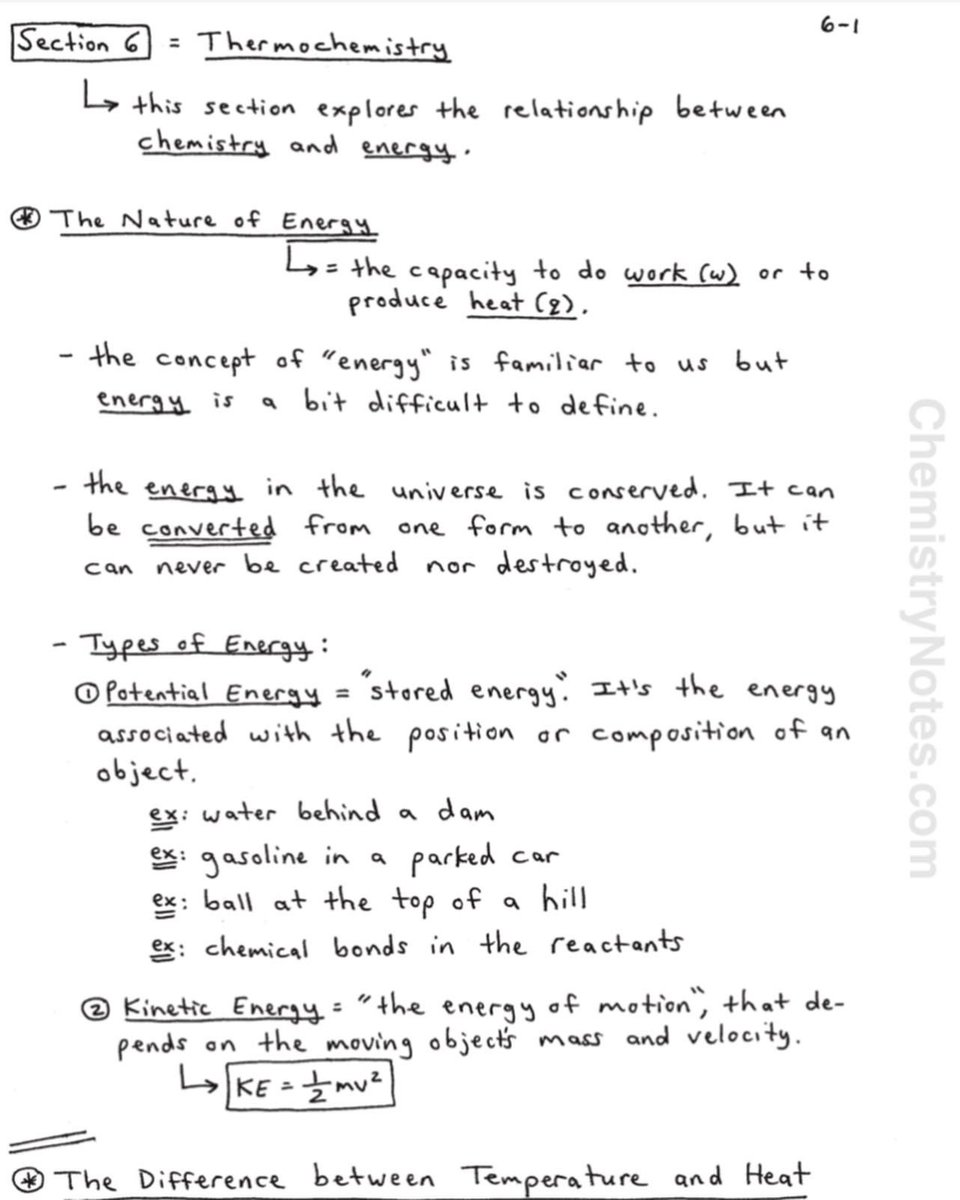 6-1
Section 6 = Thermochemistry
↳ this section explores the relationship between
chemistry and energy.
⊛ The Nature of Energy
↳ = the capacity to do work (w) or to
produce heat (q).
- the concept of "energy" is familiar to us but
energy is a bit difficult to define.
- the energy in the universe is conserved. It can
be converted from one form to another, but it
can never be created nor destroyed.
- Types of Energy:
① Potential Energy = "stored energy". It's the energy
associated with the position or composition of an
object.
ex: water behind a dam
ex: gasoline in a parked car
ex: ball at the top of a hill
ex: chemical bonds in the reactants
② Kinetic Energy = "the energy of motion", that de-
pends on the moving object's mass and velocity.
↳ KE = 1/2 mv²
⊛ The Difference between Temperature and Heat
ChemistryNotes.com